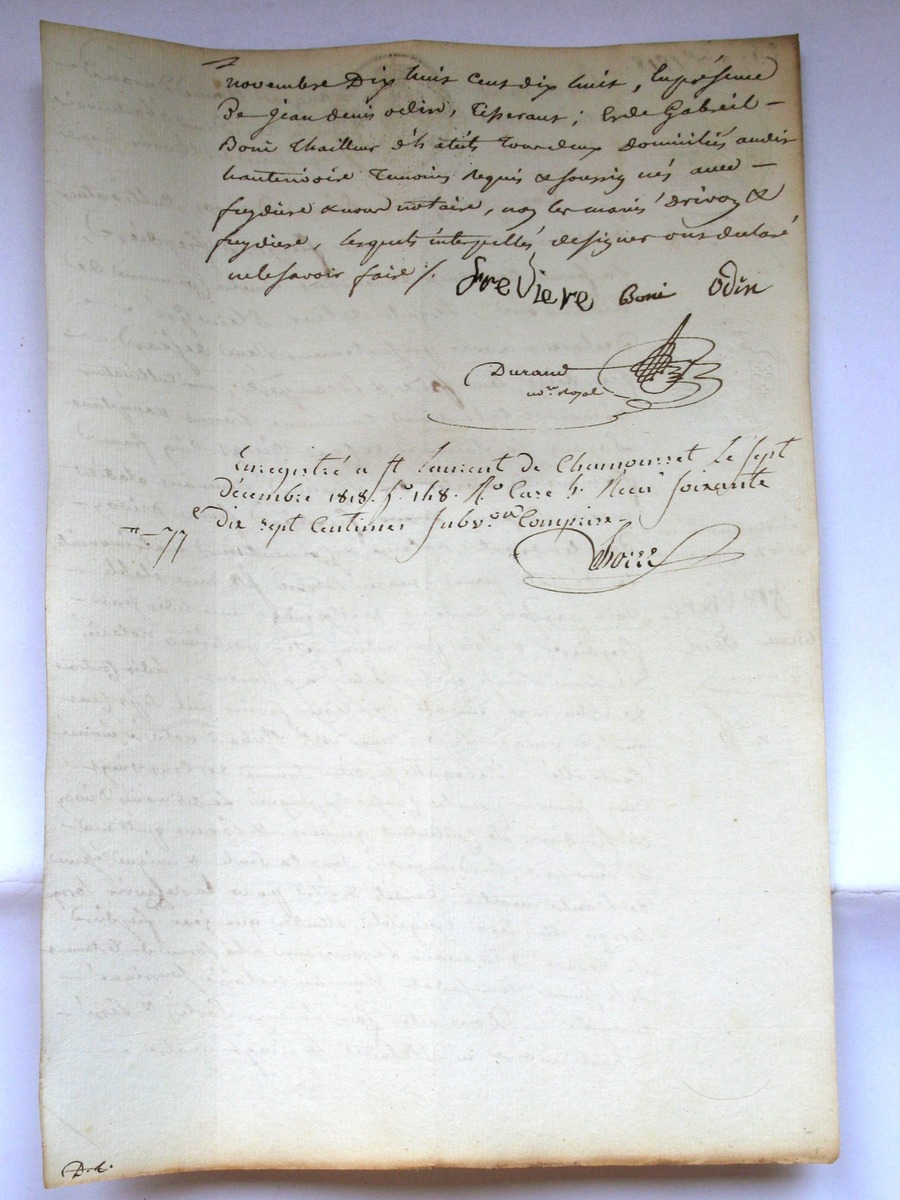 novembre Dix huit cent dix huit, En présence
De jean denis odin, tisserant, et de Gabriel
Boni tailleur d'habits tous deux domiciliés audit
hauterivoire temoins requis & soussignés avec
freydiere & nous notaire, non les mariés drivon &
freydiere, lesquels interpellés de signer ont declaré
ne le savoir faire ./.
freViere Boni Odin
Durand
not.re Royal
Enregistré a St Laurent de Chamousset Le sept
décembre 1818. f.o 148. R.o Case 5. Recu soixante
dix sept Centimes Subv.on Comprise
" - 77 c